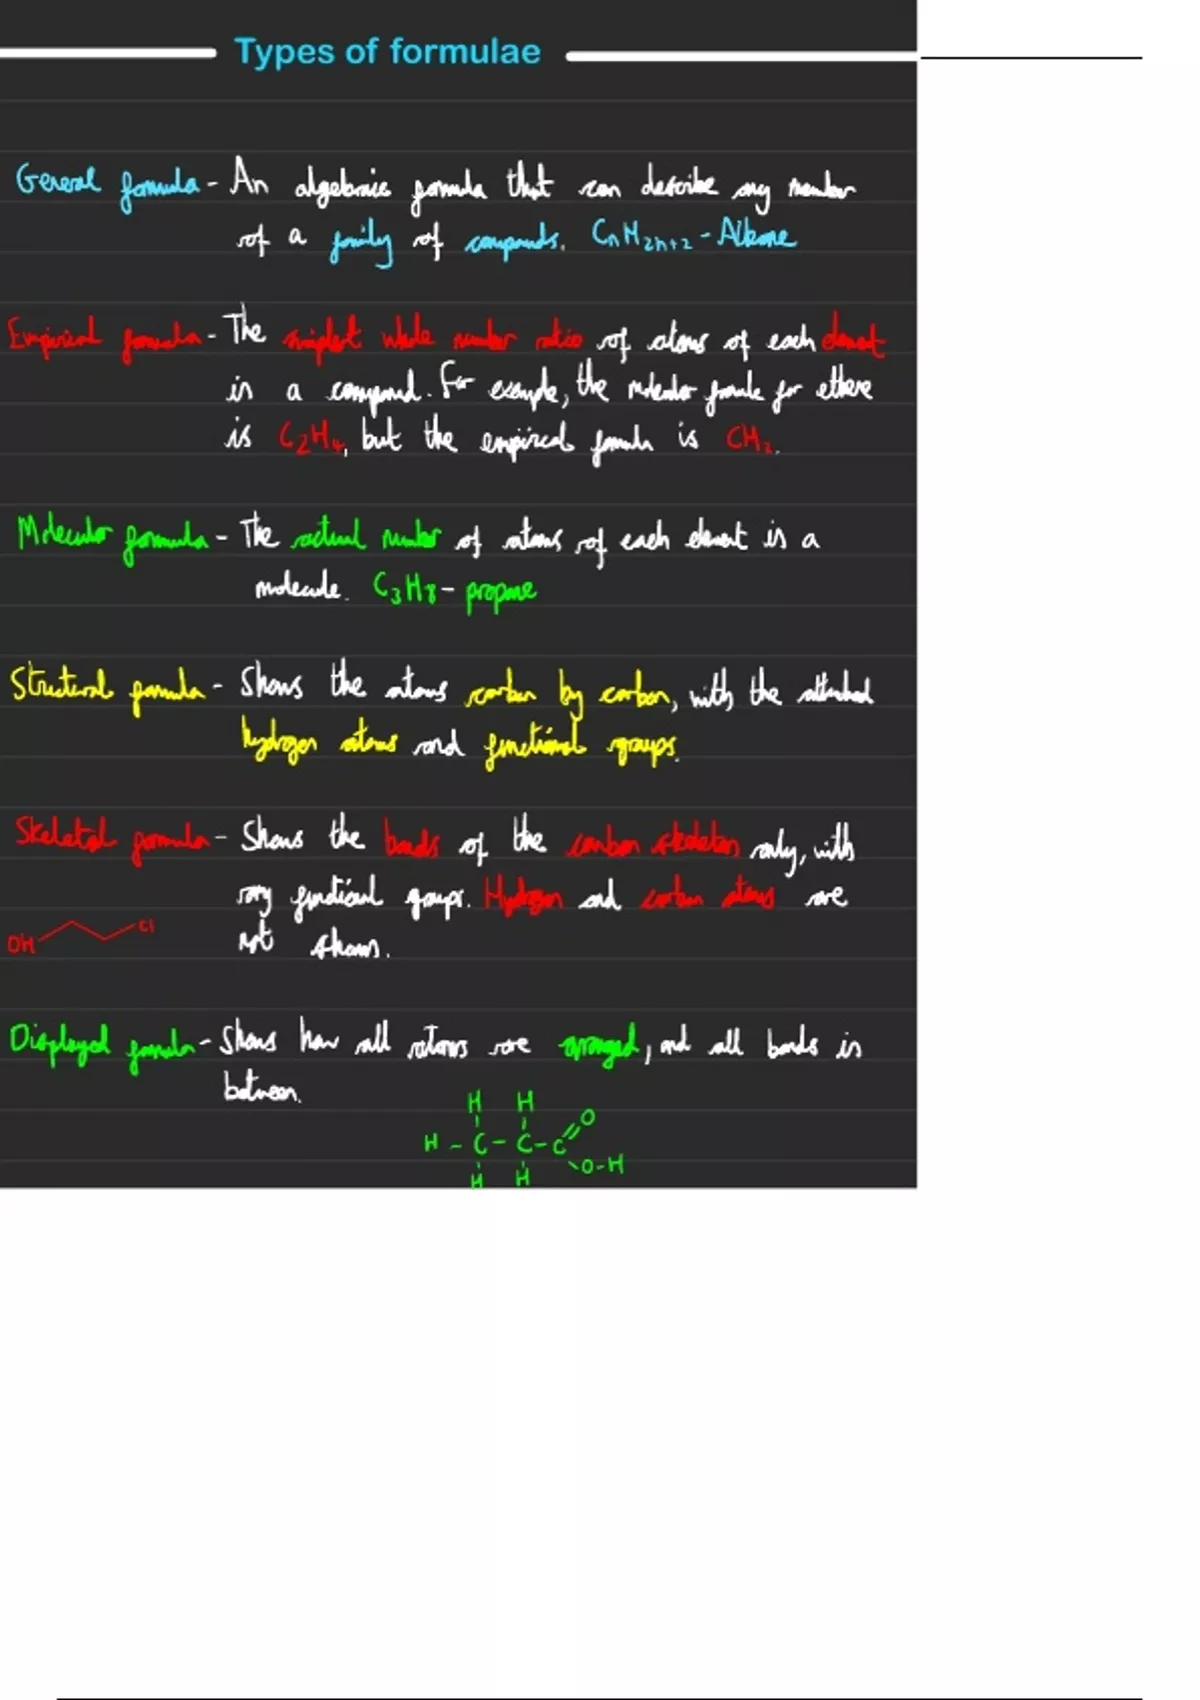 Types of formulae
General formula - An algebraic formula that can describe any member
of a family of compounds. CnH2n+2 - Alkane
Empirical formula - The simplest whole number ratio of atoms of each element
in a compound. For example, the molecular formula for ethene
is C2H4, but the empirical formula is CH2.
Molecular formula - The actual number of atoms of each element in a
molecule. C3H8 - propane
Structural formula - Shows the atoms carbon by carbon, with the attached
hydrogen atoms and functional groups.
Skeletal formula - Shows the bonds of the carbon skeleton only, with
any functional groups. Hydrogen and carbon atoms are
not shown.
OH Cl
Displayed formula - Shows how all atoms are arranged, and all bonds in
between.
H H
H - C - C - C = O
O - H
H H